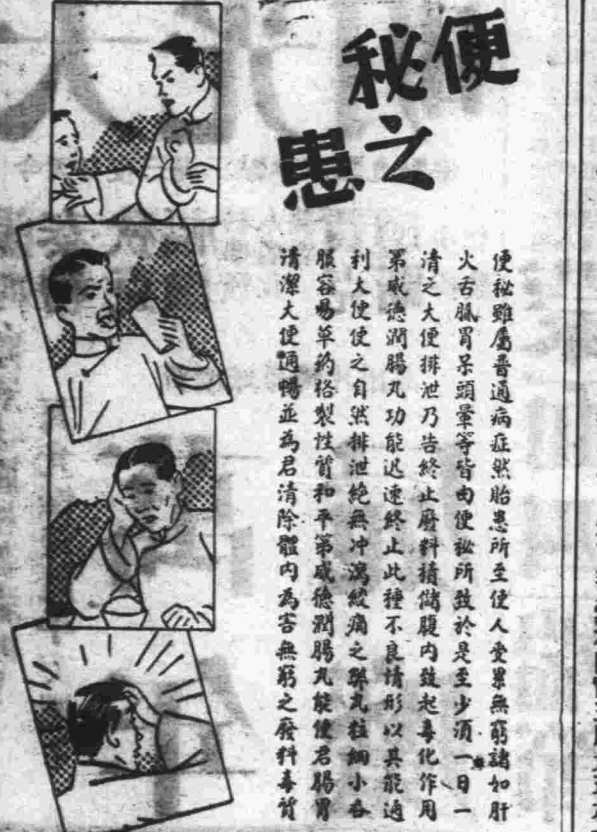 便秘之患
便秘雖屬普通病症然貽患所至使人受累無窮諸如肝
火舌膩胃呆頭暈等皆由便秘所致於是至少須一日一
清之大便排泄乃告終止廢料積儲腹內鼓起毒化作用
第威德潤腸丸功能迅速終止此種不良情形以其能通
利大便使之自然排泄絕無冲瀉絞痛之弊丸粒細小吞
服容易草藥格製性質和平第威德潤腸丸能使君腸胃
清潔大便通暢並為君清除體內為害無窮之廢料毒質